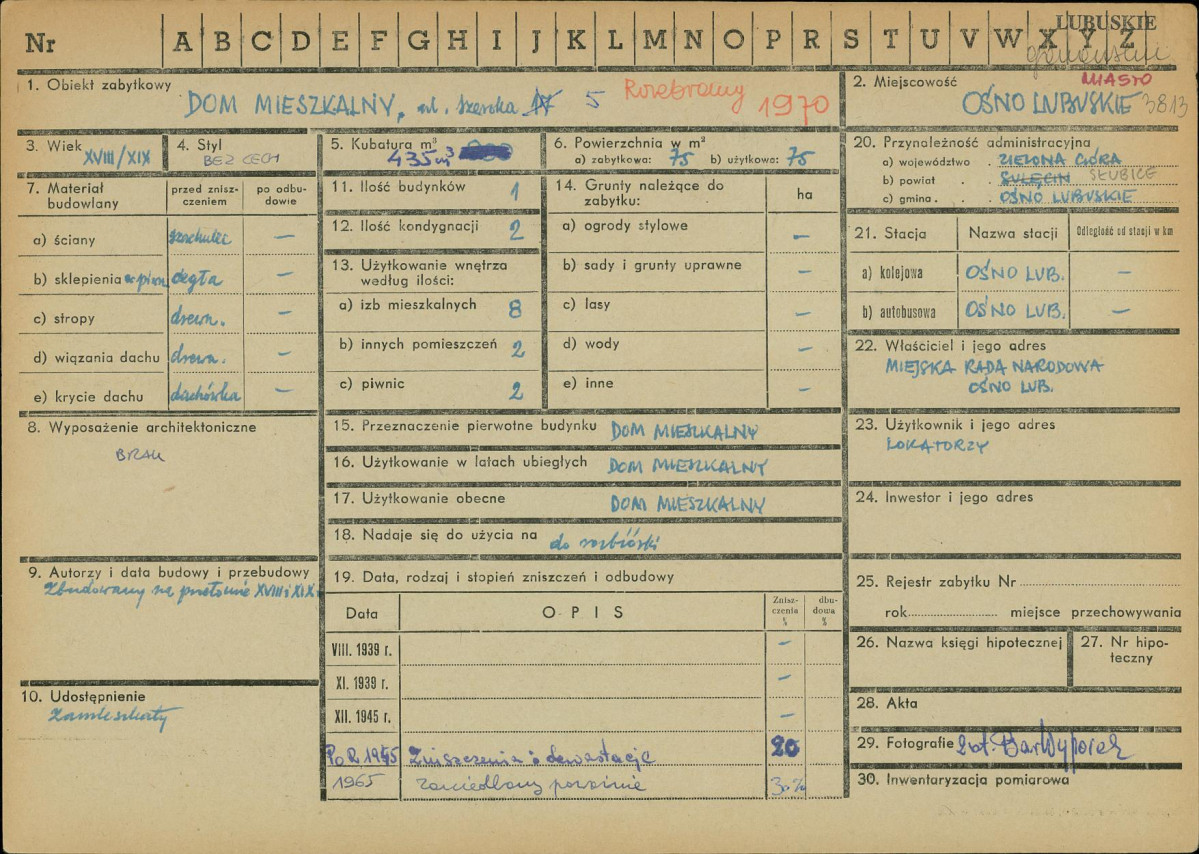 LUBUSKIE
Nr A B C D E F G H I J K L M N O P R S T U V W X Y Z
1. Obiekt zabytkowy
DOM MIESZKALNY, ul. Szeroka 5
Rozebrany 1970
2. Miejscowość MIASTO
OŚNO LUBUSKIE 3813
3. Wiek XVIII/XIX
4. Styl
BEZ CECH
5. Kubatura m³
435 m³
6. Powierzchnia w m²
a) zabytkowa: 75 b) użytkowa: 75
20. Przynależność administracyjna
a) województwo . ZIELONA GÓRA
b) powiat . . SULĘCIN SŁUBICE
c) gmina . . OŚNO LUBUSKIE
7. Materiał budowlany
przed znisz-
czeniem
po odbu-
dowie
a) ściany szachulec —
b) sklepienia w piwn. cegła —
c) stropy drewn. —
d) wiązania dachu drewn. —
e) krycie dachu dachówka —
11. Ilość budynków 1
12. Ilość kondygnacji 2
13. Użytkowanie wnętrza
według ilości:
a) izb mieszkalnych 8
b) innych pomieszczeń 2
c) piwnic 2
14. Grunty należące do
zabytku: ha
a) ogrody stylowe —
b) sady i grunty uprawne —
c) lasy —
d) wody —
e) inne —
21. Stacja Nazwa stacji Odległość od stacji w km
a) kolejowa OŚNO LUB. —
b) autobusowa OŚNO LUB. —
22. Właściciel i jego adres
MIEJSKA RADA NARODOWA
OŚNO LUB.
8. Wyposażenie architektoniczne
BRAK
15. Przeznaczenie pierwotne budynku DOM MIESZKALNY
16. Użytkowanie w latach ubiegłych DOM MIESZKALNY
17. Użytkowanie obecne DOM MIESZKALNY
18. Nadaje się do użycia na do rozbiórki
23. Użytkownik i jego adres
LOKATORZY
24. Inwestor i jego adres
9. Autorzy i data budowy i przebudowy
Zbudowany na przełomie XVIII i XIX
10. Udostępnienie
Zamieszkały
19. Data, rodzaj i stopień zniszczeń i odbudowy
Data O P I S
Znisz-
czenia
%
dbu-
dowa
%
VIII. 1939 r. —
XI. 1939 r. —
XII. 1945 r. —
Po R. 1945 Zniszczenia i dewastacje 20
1965 Zaniedbany 30%
25. Rejestr zabytku Nr
rok miejsce przechowywania
26. Nazwa księgi hipotecznej
27. Nr hipo-
teczny
28. Akta
29. Fotografie
30. Inwentaryzacja pomiarowa